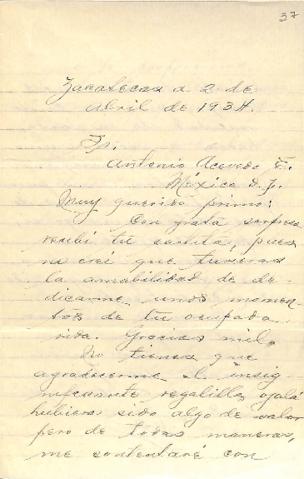 37
Zacatecas a 2 de
abril de 1934.
Sr.
Antonio Acevedo E.
México D.F.
Muy querido primo:
Con grata sorpresa
recibí tu cartita, pues
no creí que tuvieras
la amabilidad de de-
dicarme unos momen-
tos de tu ocupada
vida. Gracias mil.
No tienes que
agradecerme el insig-
nificante regalillo, ojalá
hubiera sido algo de valor
pero de todas maneras,
me contentaré con